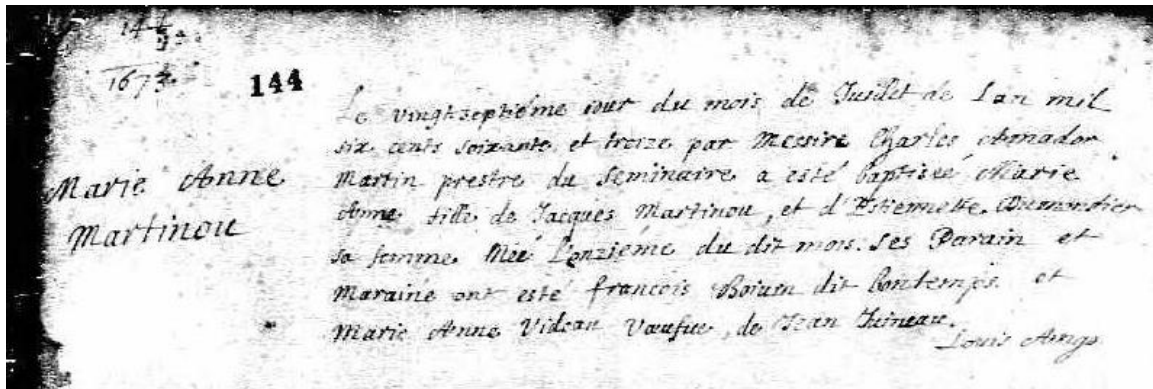 1673
144
Marie Anne
Martinou
Le vingt septiéme iour du mois de Juillet de Lan mil
six cents soixante et treize par Messire Charles Amador
Martin prestre du Seminaire a esté baptisée Marie
Anne fille de Jacques Martinou, et d'Estiennette Dumontier
sa femme Née L'onziéme du dit mois. Ses Parain et
Maraine ont esté francois dit bontemps et
Marie Anne Videau Voeufue, de Jean Juineau.
Louis Ango